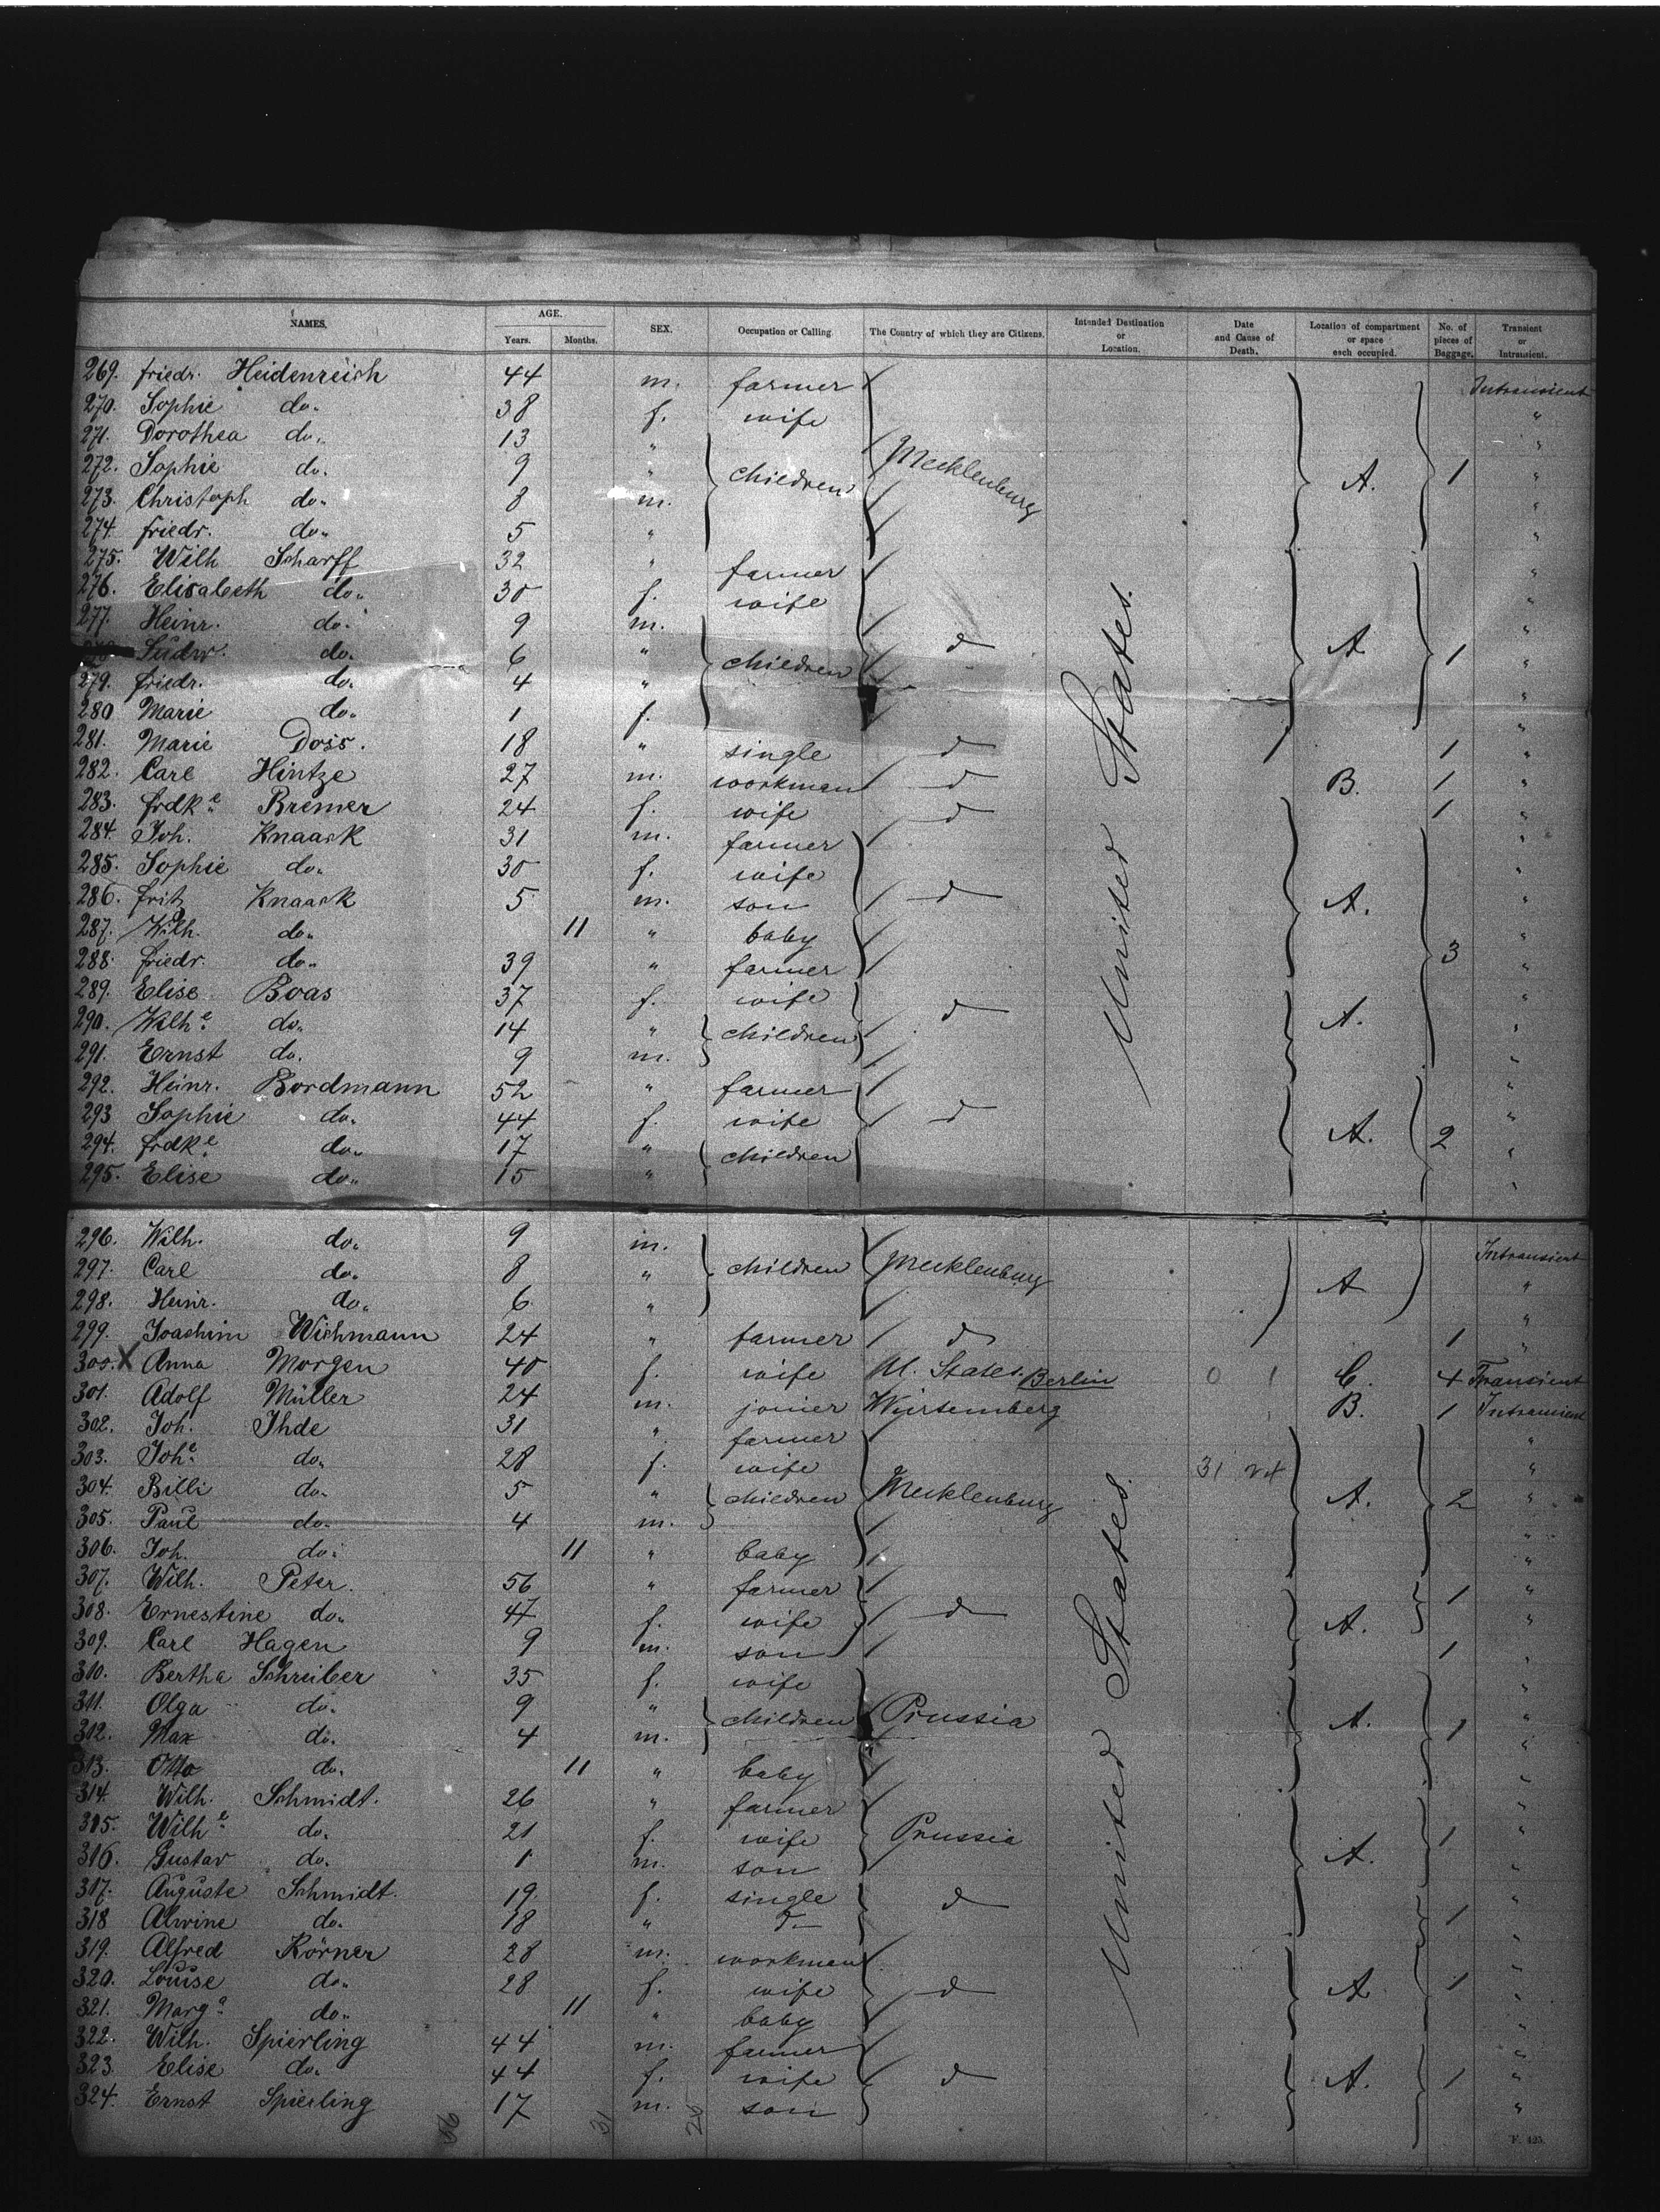 NAMES. AGE. Years. Months. SEX. Occupation or Calling. The Country of which they are Citizens. Intended Destination or Location. Date and Cause of Death. Location of compartment or space each occupied. No. of pieces of Baggage. Transient or Intransient.
269. Friedr. Heidenreich 44 m. farmer Intransient
270. Sophie do. 38 f. wife "
271. Dorothea do. 13 " "
272. Sophie do. 9 " children Mecklenburg A. 1 "
273. Christoph do. 8 m. "
274. Friedr. do. 5 " "
275. Wilh Scharff 32 " farmer "
276. Elisabeth do. 30 f. wife "
277. Heinr. do. 9 m. "
Ludw. do. 6 " children d A 1 "
279. Friedr. do. 4 " "
280 Marie do. 1 f. "
281. Marie Doss. 18 " single d 1 "
282. Carl Hintze 27 m. workman d B. 1 "
283. Frdke. Bremer 24 f. wife d 1 "
284. Joh. Knaack 31 m. farmer "
285. Sophie do. 30 f. wife "
286. Fritz Knaack 5 m. son d A. "
287. Wilh. do. 11 " baby "
288. Friedr. do. 39 " farmer 3 "
289. Elise Boas 37 f. wife d "
290. Wilhe. do. 14 " children A. "
291. Ernst do. 9 m. "
292. Heinr. Bordmann 52 " farmer "
293 Sophie do. 44 f. wife d "
294. Frdke. do. 17 " children A. 2 "
295. Elise do. 15 " "
United States.
296. Wilh. do. 9 m. Intransient
297. Carl do. 8 " children Mecklenburg A "
298. Heinr. do. 6 " "
299. Joachim Wichmann 24 " farmer d 1 "
300. X Anna Morgen 40 f. wife U. States. Berlin 0 1 C. 4 Transient
301. Adolf Müller 24 m. joiner Würtemberg B. 1 Intransient
302. Joh. Ihde 31 " farmer "
303. Johe. do. 28 f. wife 31 24 "
304. Billi do. 5 " children Mecklenburg A. 2 "
305. Paul do. 4 m. "
306. Joh. do. 11 " baby "
307. Wilh. Peter. 56 " farmer 1 "
308. Ernestine do. 47 f. wife d A. "
309. Carl Hagen 9 m. son 1 "
310. Bertha Schreiber 35 f. wife "
311. Olga do. 9 " children Prussia A. "
312. Max do. 4 m. 1 "
313. Otto do. 11 " baby "
314. Wilh. Schmidt. 26 " farmer "
315. Wilhe. do. 21 f. wife Prussia 1 "
316. Gustav do. 1 m. son A. "
317. Auguste Schmidt. 19. f. single d "
318 Alwine do. 18 " d 1 "
319. Alfred Körner 28 m. workman "
320. Louise do. 28 f. wife d A 1 "
321. Marge. do. 11 " baby "
322. Wilh. Spierling 44 m. farmer "
323. Elise do. 44 f. wife d A. 1 "
324. Ernst Spierling 17 m. son "
United States.
56 31 25
F. 425.